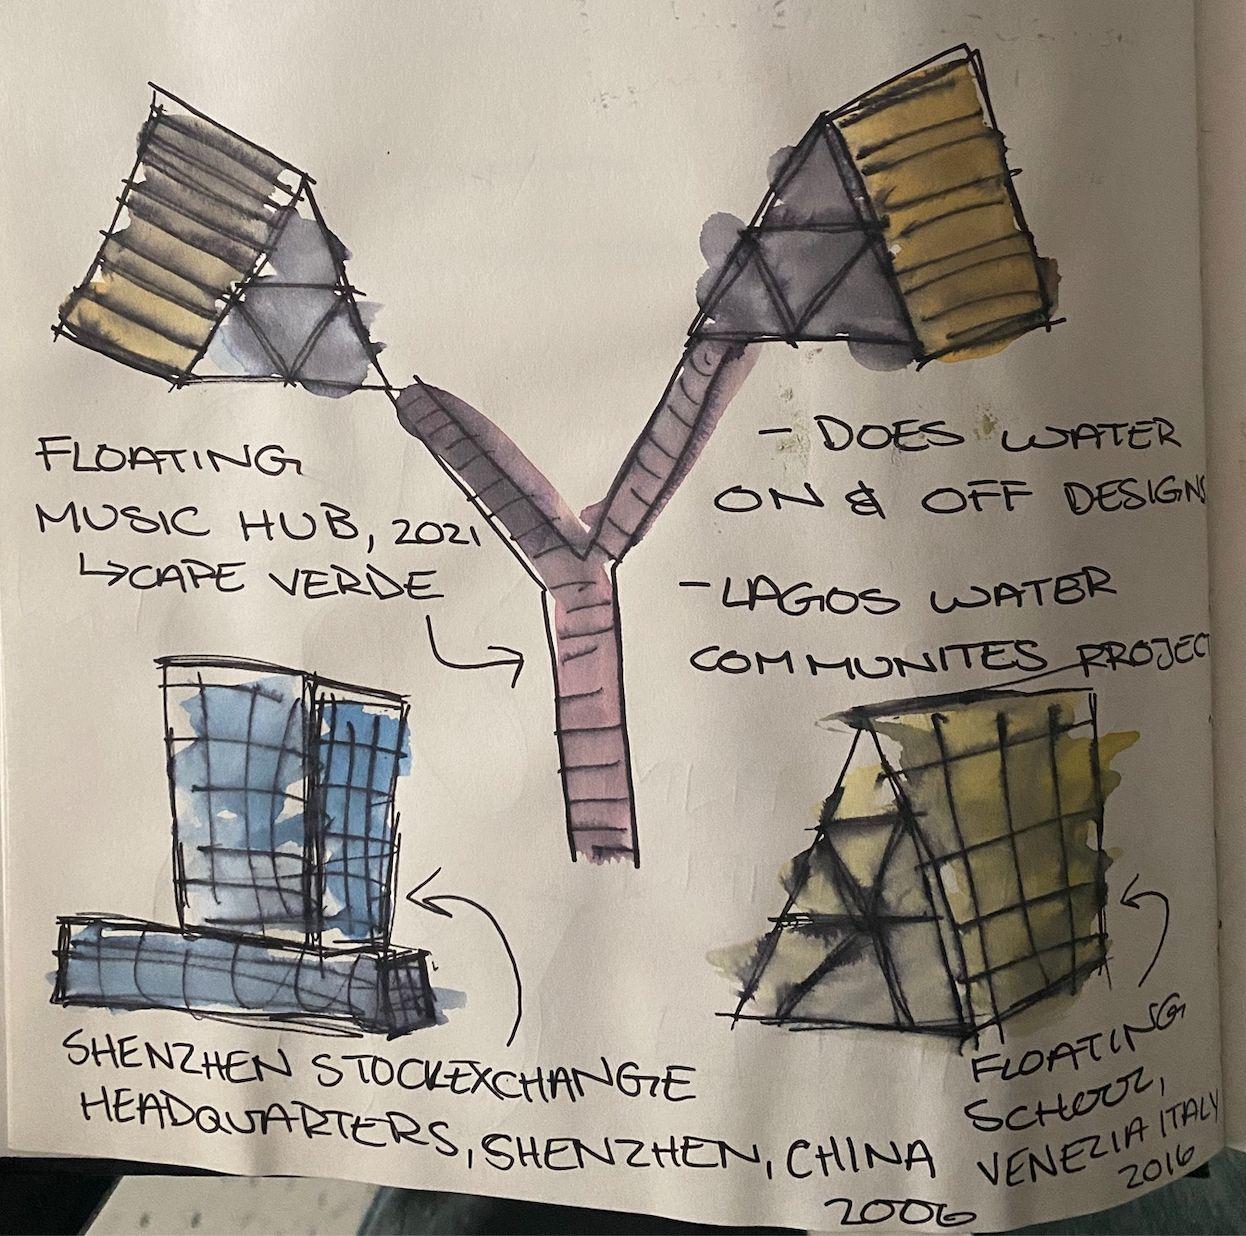 FLOATING
MUSIC HUB, 2021
↳CAPE VERDE
- DOES WATER
ON & OFF DESIGNS
- LAGOS WATER
COMMUNITES PROJECT
SHENZHEN STOCKEXCHANGE
HEADQUARTERS, SHENZHEN, CHINA
2006
FLOATING
SCHOOL,
VENEZIA ITALY
2016